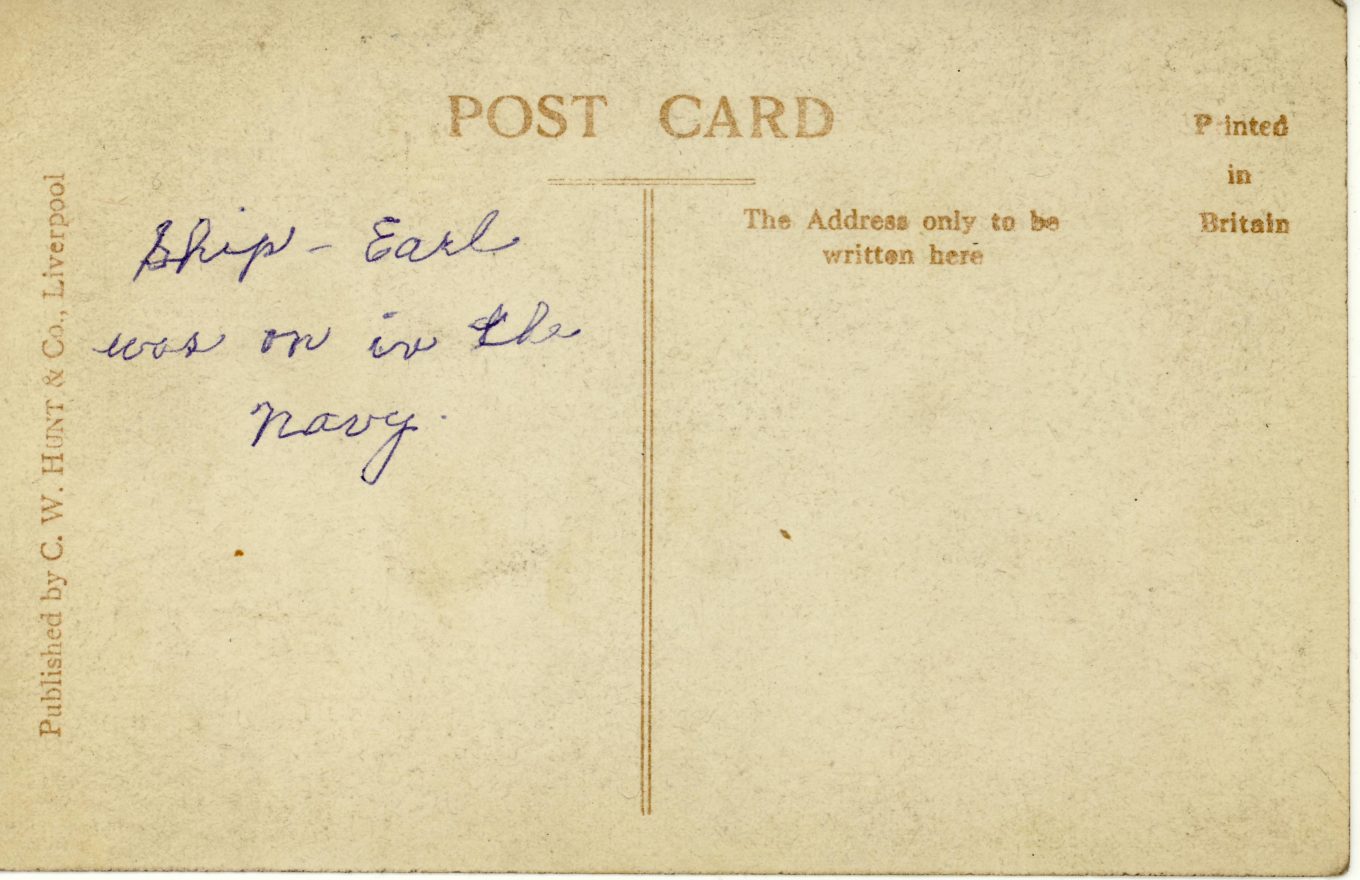 POST CARD
Printed
in
Britain
The Address only to be
written here
Ship - Earl
was on in the
navy.
Published by C. W. HUNT & Co., Liverpool